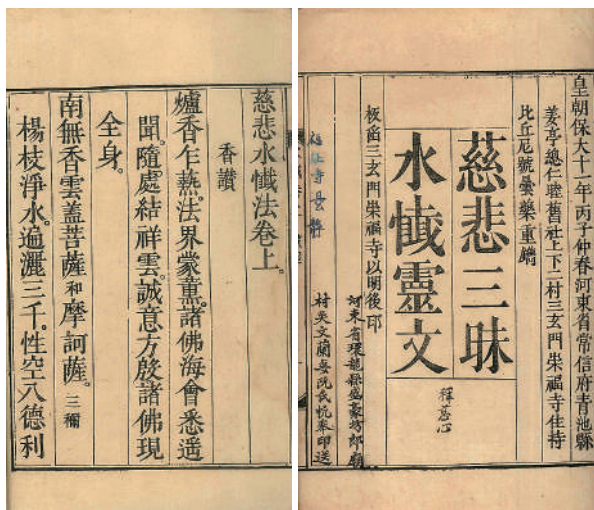 皇朝保大十一年丙子仲春河東省常信府青池縣
姜亭總仁睦舊社上下二村三玄門崇福寺住持
比丘尼號曇藥重鐫
慈悲三昧
水懺靈文
板留三玄門崇福寺以明後印
河東省環龍縣盛豪坊郎廟
村吳文蘭妾阮氏忱奉印送
慈悲水懺法卷上。
香讚
爐香乍爇。法界蒙熏。諸佛海會悉遥
聞。隨處結祥雲。誠意方殷諸佛現
全身。
南無香雲蓋菩薩和摩訶薩。三稱
楊枝淨水。遍灑三千。性空八德利